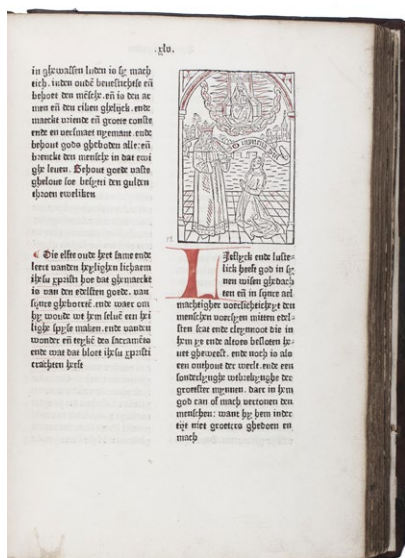 .xlv.
in ghewassen luden is sy mach
tich. inden oudē beuestichtse eñ
behoet den mēsche. eñ is den ar
men eñ den riken ghelijck. ende
maeckt vriende eñ groote conste
ende en versmaet nyemant. ende
behout gods gheboden alle: eñ
brenckt den mensche in dat ewi
ghe leuen. Behout goede vaste
gheloue soe besytti den gulden
throen eweliken
Die elfte oude heet same ende
leert vanden heylighen lichaem
ihesu xpristi hoe dat ghemarckt
is van den edelsten goede. van
synre gheboerte. ende waer om
hy woude we hem seluē een hei
lighe spyse maken. ende vanden
wonder eñ teykē des sacramēts
ende wat dat bloet ihesu xpristi
crachten heest
Loflyck ende luste-
lick heest god in sy
nen wisen ghedach
ten eñ in synre ael
machtigher voersichticheyt den
menschen voersyen mitten edel-
sten scat ende cleynnoot die in
hem ye ende altoes besloten he-
uet gheweest. ende noch is als
een onthout der werlt. ende een
sonderlynghe wtbrekynghe der
groetster mynnen. daer in hem
god can of mach vertonen den
menschen: want hy hem inder
tijt niet groeters ghedoen en
mach